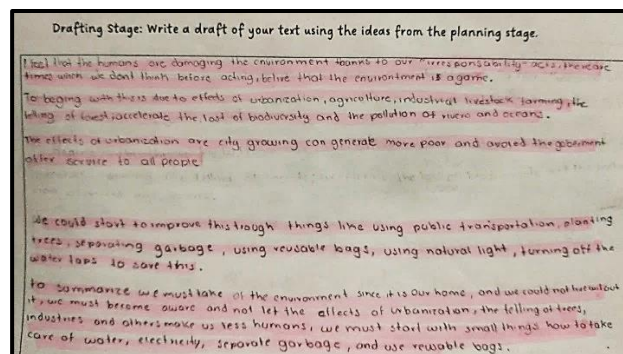 Drafting Stage: Write a draft of your text using the ideas from the planning stage.
I feel that the humans are damaging the environment toanns to our "irresponsability" acts, there are
times when we dont think before acting, belive that the environtment is a game.
To beging with this is due to effects of urbanization, agricolture, industrial livestock farming, the
felling of forest, accelerate the lost of biodiversity and the pollution of rivers and oceans.
The effects of urbanization are city growing can generate more poor and avoied the goberment
offer service to all people
We could start to improve this trough things like using public transportation, planting
trees, separating garbage, using reusable bags, using natural light, turning off the
water taps to save this.
to summarize we must take of the environment since it is Our home, and we could not live without
it, we must become aware and not let the effects of urbanization, the felling of trees,
industries and others make us less humans, we must start with small things how to take
care of water, electricity, separate garbage, and use reusable bags.